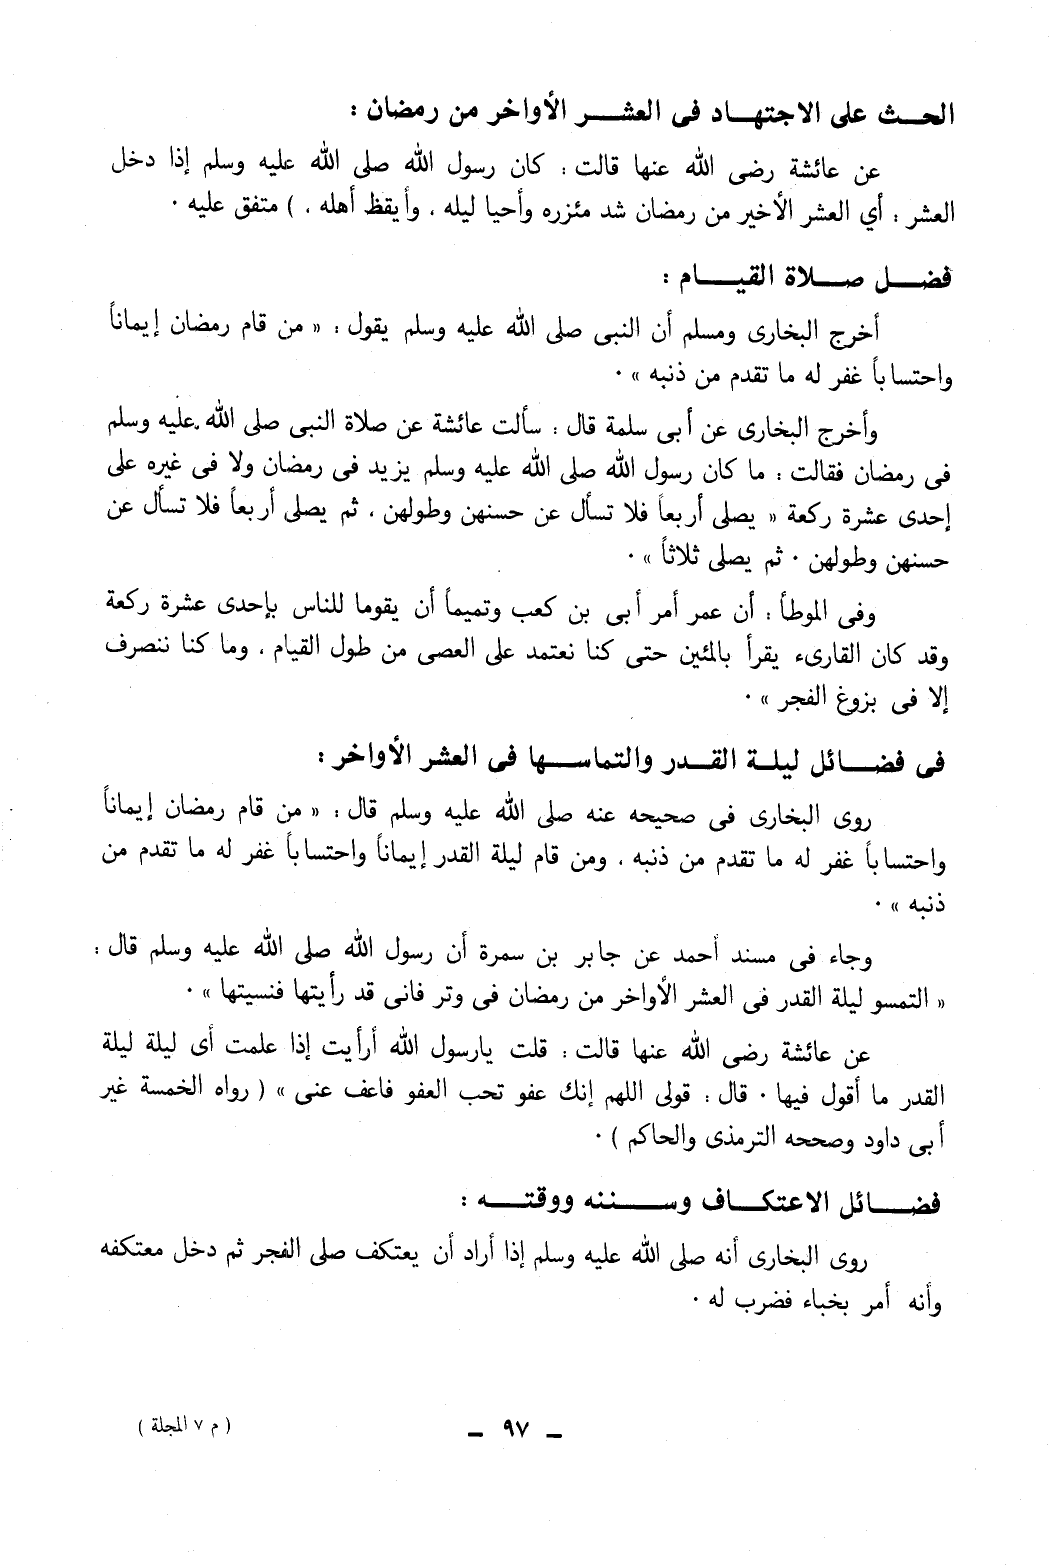 الحث على الاجتهاد فى العشر الأواخر من رمضان :
عن عائشة رضى الله عنها قالت : كان رسول الله صلى الله عليه وسلم إذا دخل
العشر : أي العشر الأخير من رمضان شد مئزره وأحيا ليله ، وأيقظ أهله ، ) متفق عليه ٠
فضل صلاة القيام :
أخرج البخارى ومسلم أن النبى صلى الله عليه وسلم يقول : « من قام رمضان إيماناً
واحتساباً غفر له ما تقدم من ذنبه » ٠
وأخرج البخارى عن أبى سلمة قال : سألت عائشة عن صلاة النبى صلى الله عليه وسلم
فى رمضان فقالت : ما كان رسول الله صلى الله عليه وسلم يزيد فى رمضان ولا فى غيره على
إحدى عشرة ركعة « يصلى أربعاً فلا تسأل عن حسنهن وطولهن ، ثم يصلى أربعاً فلا تسأل عن
حسنهن وطولهن ٠ ثم يصلى ثلاثاً » ٠
وفى الموطأ : أن عمر أمر أبى بن كعب وتميماً أن يقوما للناس بإحدى عشرة ركعة
وقد كان القارىء يقرأ بالمئين حتى كنا نعتمد على العصى من طول القيام ، وما كنا ننصرف
إلا فى بزوغ الفجر » ٠
فى فضائل ليلة القدر والتماسها فى العشر الأواخر :
روى البخارى فى صحيحه عنه صلى الله عليه وسلم قال : « من قام رمضان إيماناً
واحتساباً غفر له ما تقدم من ذنبه ، ومن قام ليلة القدر إيماناً واحتساباً غفر له ما تقدم من
ذنبه » ٠
وجاء فى مسند أحمد عن جابر بن سمرة أن رسول الله صلى الله عليه وسلم قال :
« التمسو ليلة القدر فى العشر الأواخر من رمضان فى وتر فانى قد رأيتها فنسيتها » ٠
عن عائشة رضى الله عنها قالت : قلت يارسول الله أرأيت إذا علمت أى ليلة ليلة
القدر ما أقول فيها ٠ قال : قولى اللهم إنك عفو تحب العفو فاعف عنى » ( رواه الخمسة غير
أبى داود وصححه الترمذى والحاكم ) ٠
فضائل الاعتكاف وسننه ووقته :
روى البخارى أنه صلى الله عليه وسلم إذا أراد أن يعتكف صلى الفجر ثم دخل معتكفه
وأنه أمر بخباء فضرب له ٠
ـ ٩٧ ـ
( م ٧ المجلة )